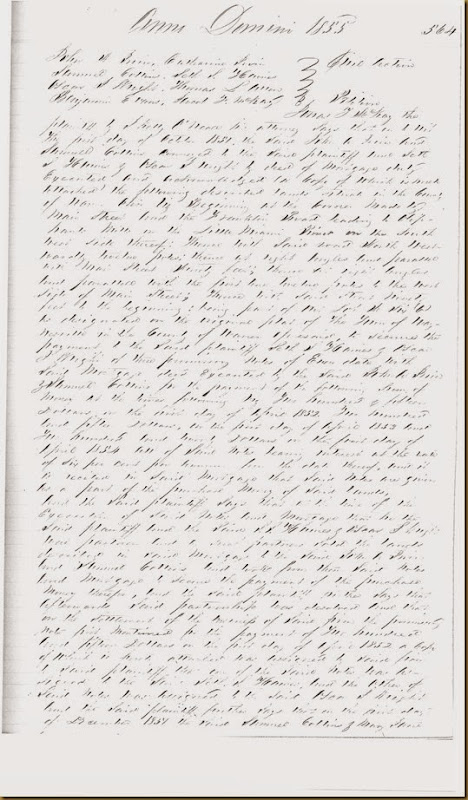 Anno Domini 1855 564
John H Irvin, Catharine Irvin
Samuel Collins, Seth S Haines
Isaac S Wright Thomas L
Benjamin Evans, Petition
Jonas T McKay the
plantiff by attorney Says that on to wit
The first day of October 1851 the said John H Irvin and
Samuel Collins the said plaintiff and Seth
S Haines & Isaac S Wright by deed of Mortgage duly
Executed and acknowledged a Copy of which is hereto
attached the following described lands situate in the County
of Warren Ohio Beginning at the Corner made by
Main Street and the Road leading to
Mills on the Little Miami River on the South
West side thereof; thence with said road South West
wardly twelve poles; thence at right angles and parallel
with Main Street feet; thence at right angles
and parallel with the first line twelve poles to the west
side of Main Street; thence with said Street
feet to the beginning; being part of Lot
as designated on the original plat of the Town of
in the County of Warren aforesaid, to secure the
payment to the said plaintiff Seth S Haines & Isaac
S Wright of three promissory Notes of Even date with
said Mortgage deed Executed by the said John H Irvin
& Samuel Collins for the payment of the following Sums of
Money at the times following Two Hundred & fifteen
Dollars, on the first day of April 1852. Two hundred
and fifty Dollars, on the first day of April 1853 and
Two hundred and Dollars on the first day of
April 1854 all of said Notes bearing interest at the rate
of Six per cent per annum from the date thereof, and it
is recited in said Mortgage that said Notes are given
as a part of the purchase Money of said lands,
And the said plaintiff Says that at the time of the
Execution of said Notes and Mortgage that he the
said plaintiff and the said S S Haines & Isaac S Wright
were partners and as such partners sold the lands
described in said Mortgage to the said John H Irvin
and Samuel Collins and took from them said Notes
and Mortgage to secure the payment of the purchase
Money thereof, and the said plaintiff further Says that
afterwards said partnership was dissolved and that
on the settlement of the business of said firm the promissory
Note first Mentioned for the payment of Two hundred
& fifteen Dollars on the first day of April 1852 a Copy
of which is hereto attached was assigned by said firm
to said plaintiff the one of the said Notes was
signed to the said Seth S Haines and the other of
said Notes was assigned to the said Isaac S Wright
And the said plaintiff further Says that on the first day
of December 1851 the said Samuel Collins & Mary